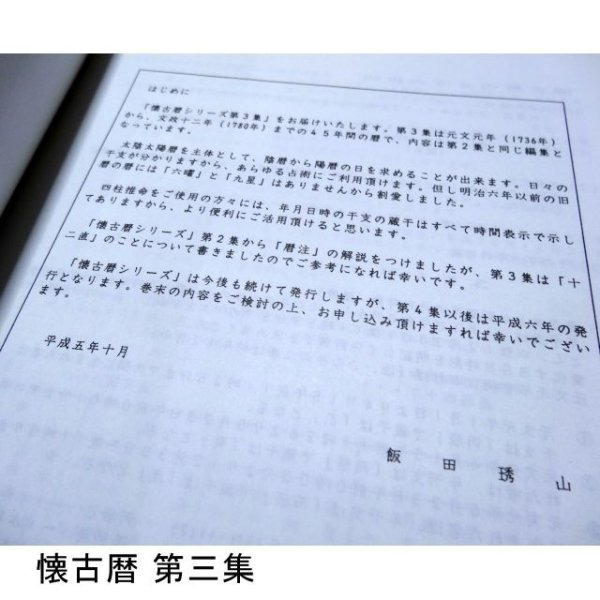 はじめに
「懐古暦シリーズ第3集」をお届けいたします。第3集は元文元年(1736年)
から、文政十二年(1780年)までの45年間の暦で、内容は第2集と同じ編集と
なっています。
太陰太陽暦を主体として、陰暦から陽暦の日を求めることが出来ます。日々の
干支が分かりますから、あらゆる占術にご利用頂けます。但し明治六年以前の旧
暦の暦には「六曜」と「九星」はありませんから割愛しました。
四柱推命をご使用の方々には、年月日時の干支の蔵干はすべて時間表示で示し
てありますから、より便利にご活用頂けると思います。
「懐古暦シリーズ」第2集から「暦注」の解説をつけましたが、第3集は「十
二直」のことについて書きましたのでご参考になれば幸いです。
「懐古暦シリーズ」は今後も続けて発行しますが、第4集以後は平成六年の発
行となります。巻末の内容をご検討の上、お申し込み頂けますれば幸いでござい
ます。
平成五年十月
飯田琇山
懐古暦 第三集